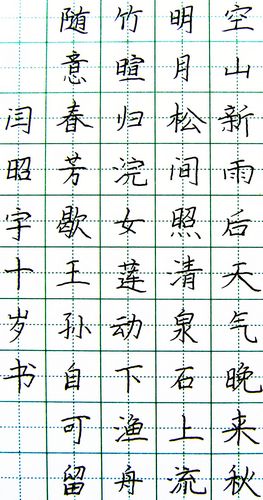 空山新雨后天气晚来秋
明月松间照清泉石上流
竹暄归浣女莲动下渔舟
随意春芳歇王孙自可留
闫昭宇十岁书